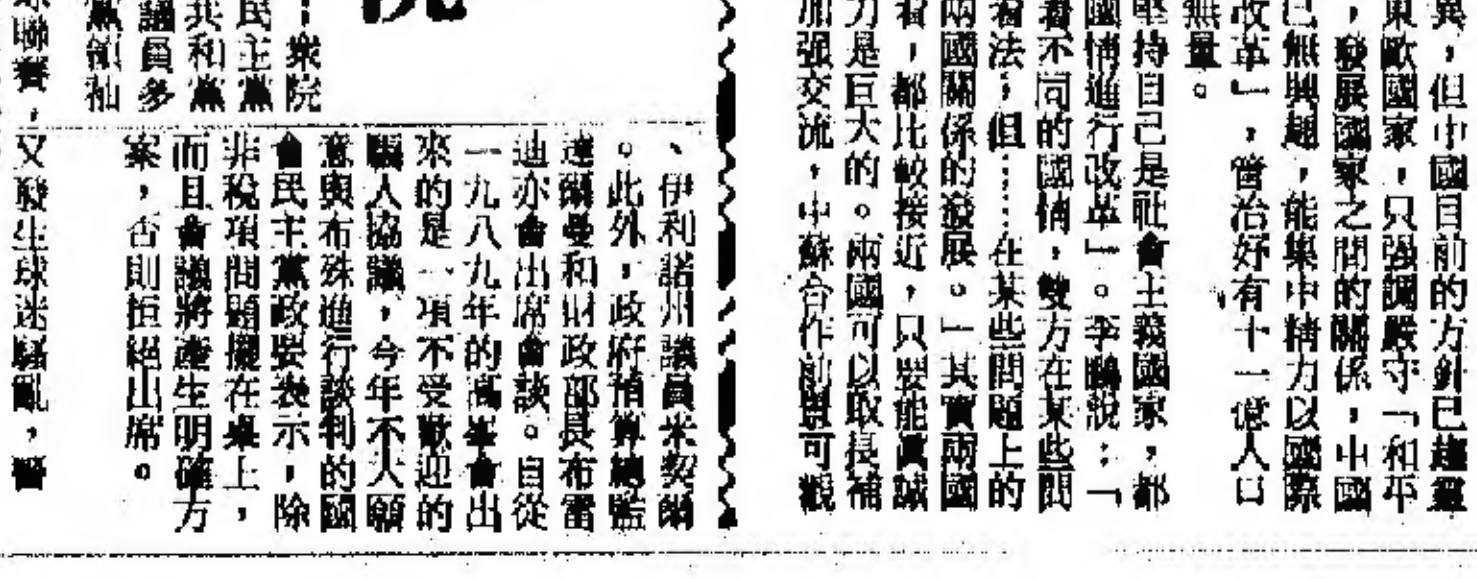 異，但中國目前的方針已趨靈
東歐國家，只强調嚴守「和平
，發展國家之間的關係，中國
已無興趣，能集中精力以國際
改革」，管治好有十一億人口
無量。
堅持自己是社會主義國家，都
國情進行改革」。李鵬說：「
着不同的國情，雙方在某些問
着法，但……在某些問題上的
兩國關係的發展。」其實兩國
看，都比較接近，只要能眞誠
力是巨大的。兩國可以取長補
加强交流，中蘇合作前景可觀
：衆院
民主黨
共和黨
議員多
黨領袖
、伊利諾州議員米契爾
。此外，政府預算總監
達爾曼和財政部長布雷
迪亦會出席會談。自從
一九八九年的高峯會出
來的是一項不受歡迎的
騙人協議，今年不大願
意與布殊進行談判的國
會民主黨政要表示，除
非稅項問題擺在桌上，
而且會議將產生明確方
案，否則拒絕出席。
聯賽，又發生球迷騷亂，警